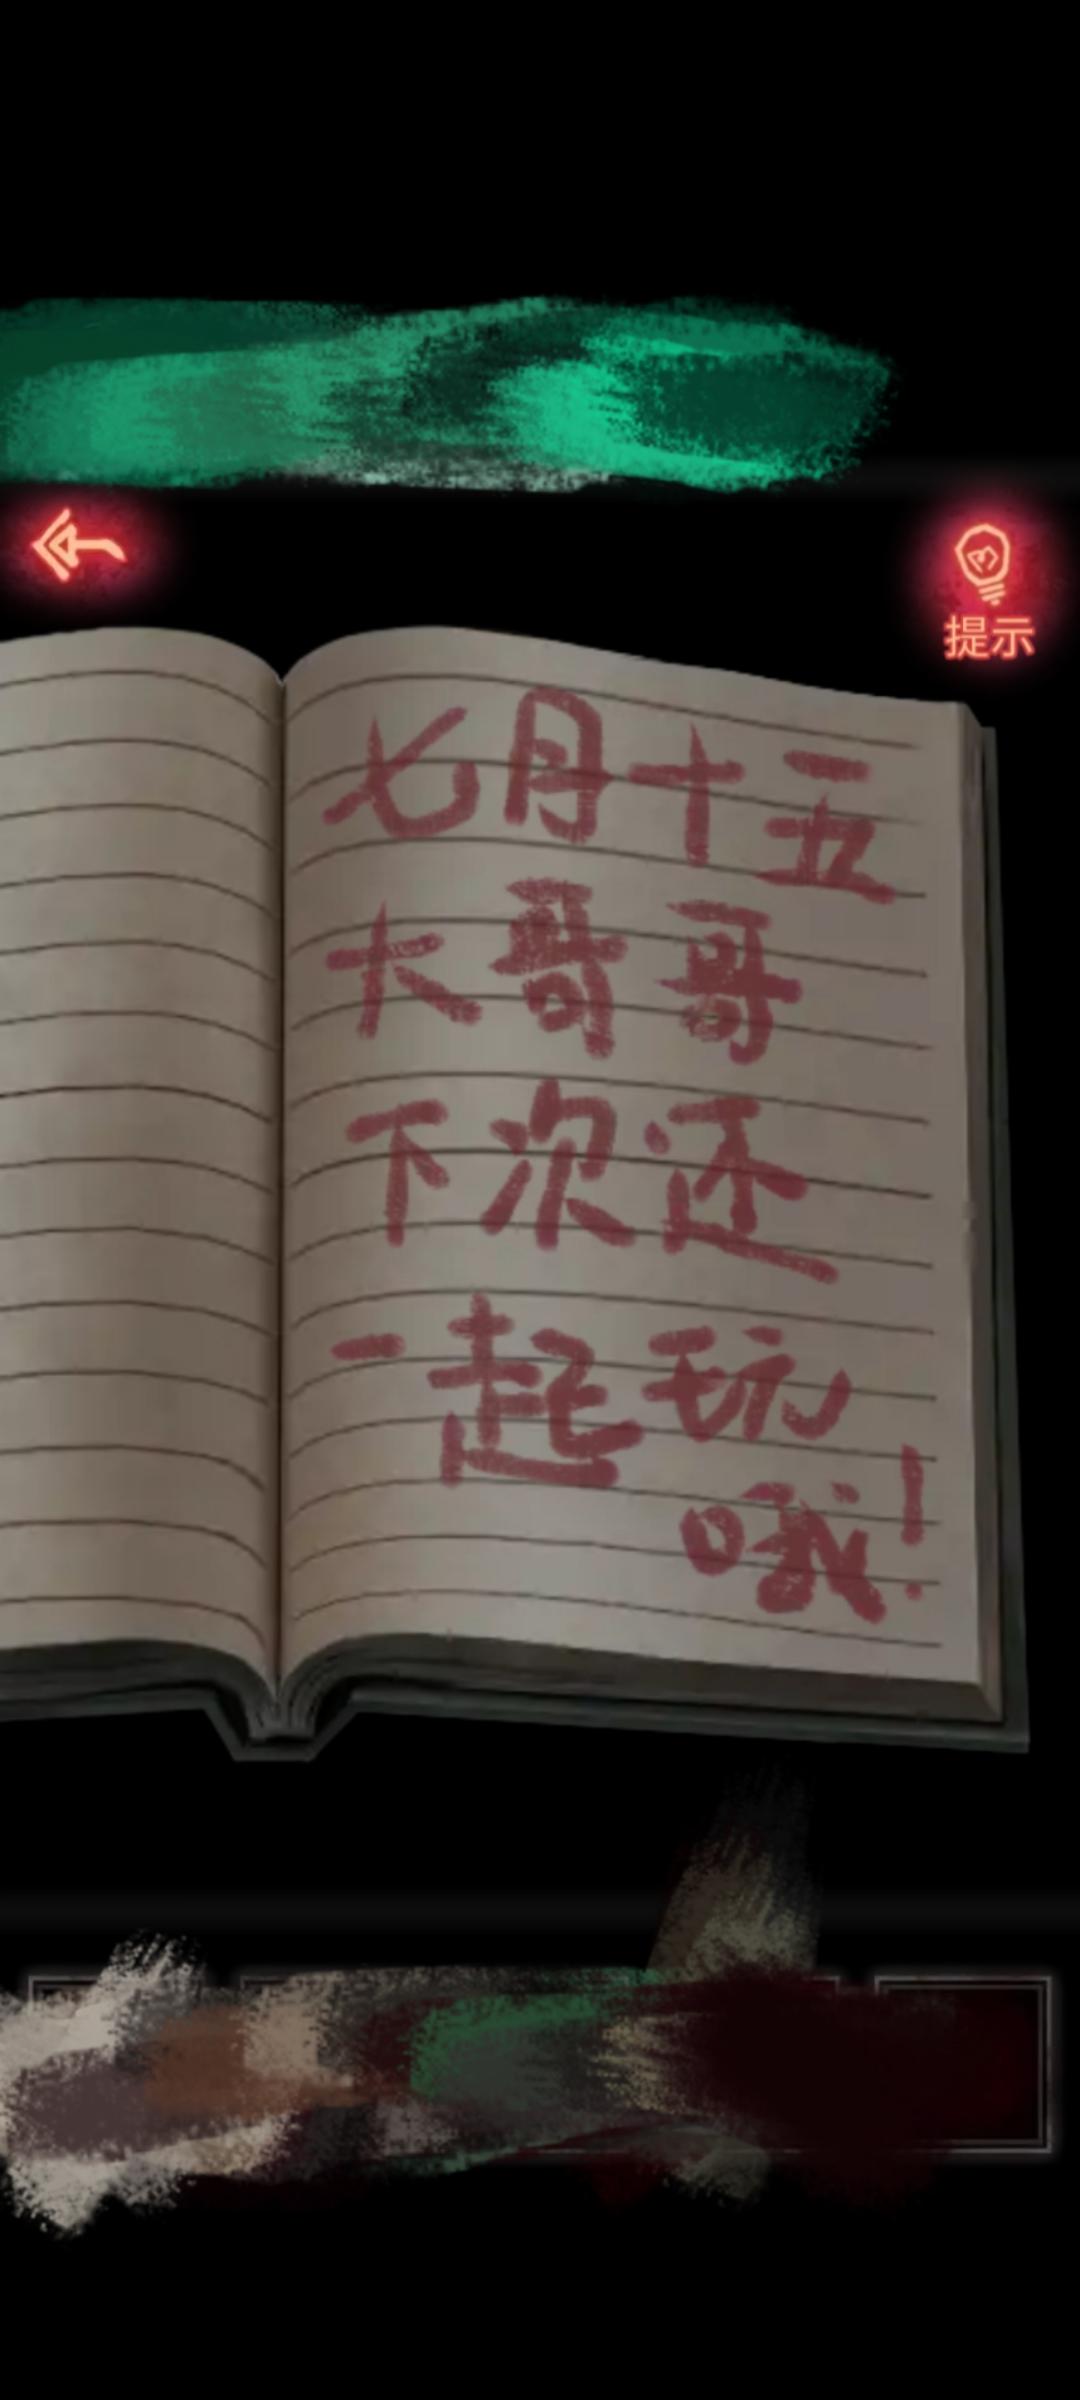 提示
七月十五
大哥哥
下次还
一起玩
哦！